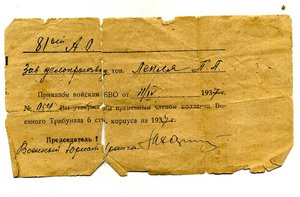 81ый А О
Зав делопроизвод тов. Лепля П. П.
Приказом войскам БВО от 11/IV 1937 г.
№ 0151 Вы утверждены временным членом коллегии Во-
енного Трибунала 6 стр. корпуса на 1937 г.
Председатель
Военный Юрист ранга